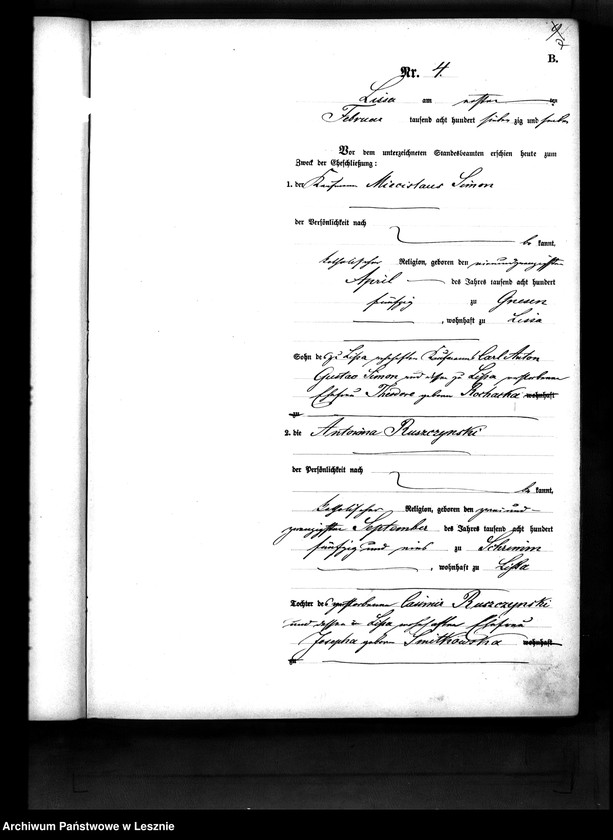 B.
Nr. 4.
Lissa am ersten
Februar tausend acht hundert sieben zig und sieben
Vor dem unterzeichneten Standesbeamten erschien heute zum
Zweck der Eheschließung:
1. der Kaufmann Miecislaus Simon
der Persönlichkeit nach
be kannt,
katholischer Religion, geboren den neunundzwanzigsten
April des Jahres tausend acht hundert
fünfzig zu Gnesen
, wohnhaft zu Lissa
Sohn des zu Lissa wohnhaften Kaufmanns Carl Anton
Gustav Simon und dessen zu Lissa verstorbenen
Ehefrau Theodore geborene wohnhaft
zu
2. die Antonina Ruszczynski
der Persönlichkeit nach
be kannt,
katholischer Religion, geboren den zweiund-
zwanzigsten September des Jahres tausend acht hundert
fünfzig und eins zu Schrimm
, wohnhaft zu Lissa
Tochter des verstorbenen Casimir Ruszczynski
und dessen in Lissa wohnhaften Ehefrau
Josepha geborene Smitkowska wohnhaft
zu
Archiwum Państwowe w Lesznie